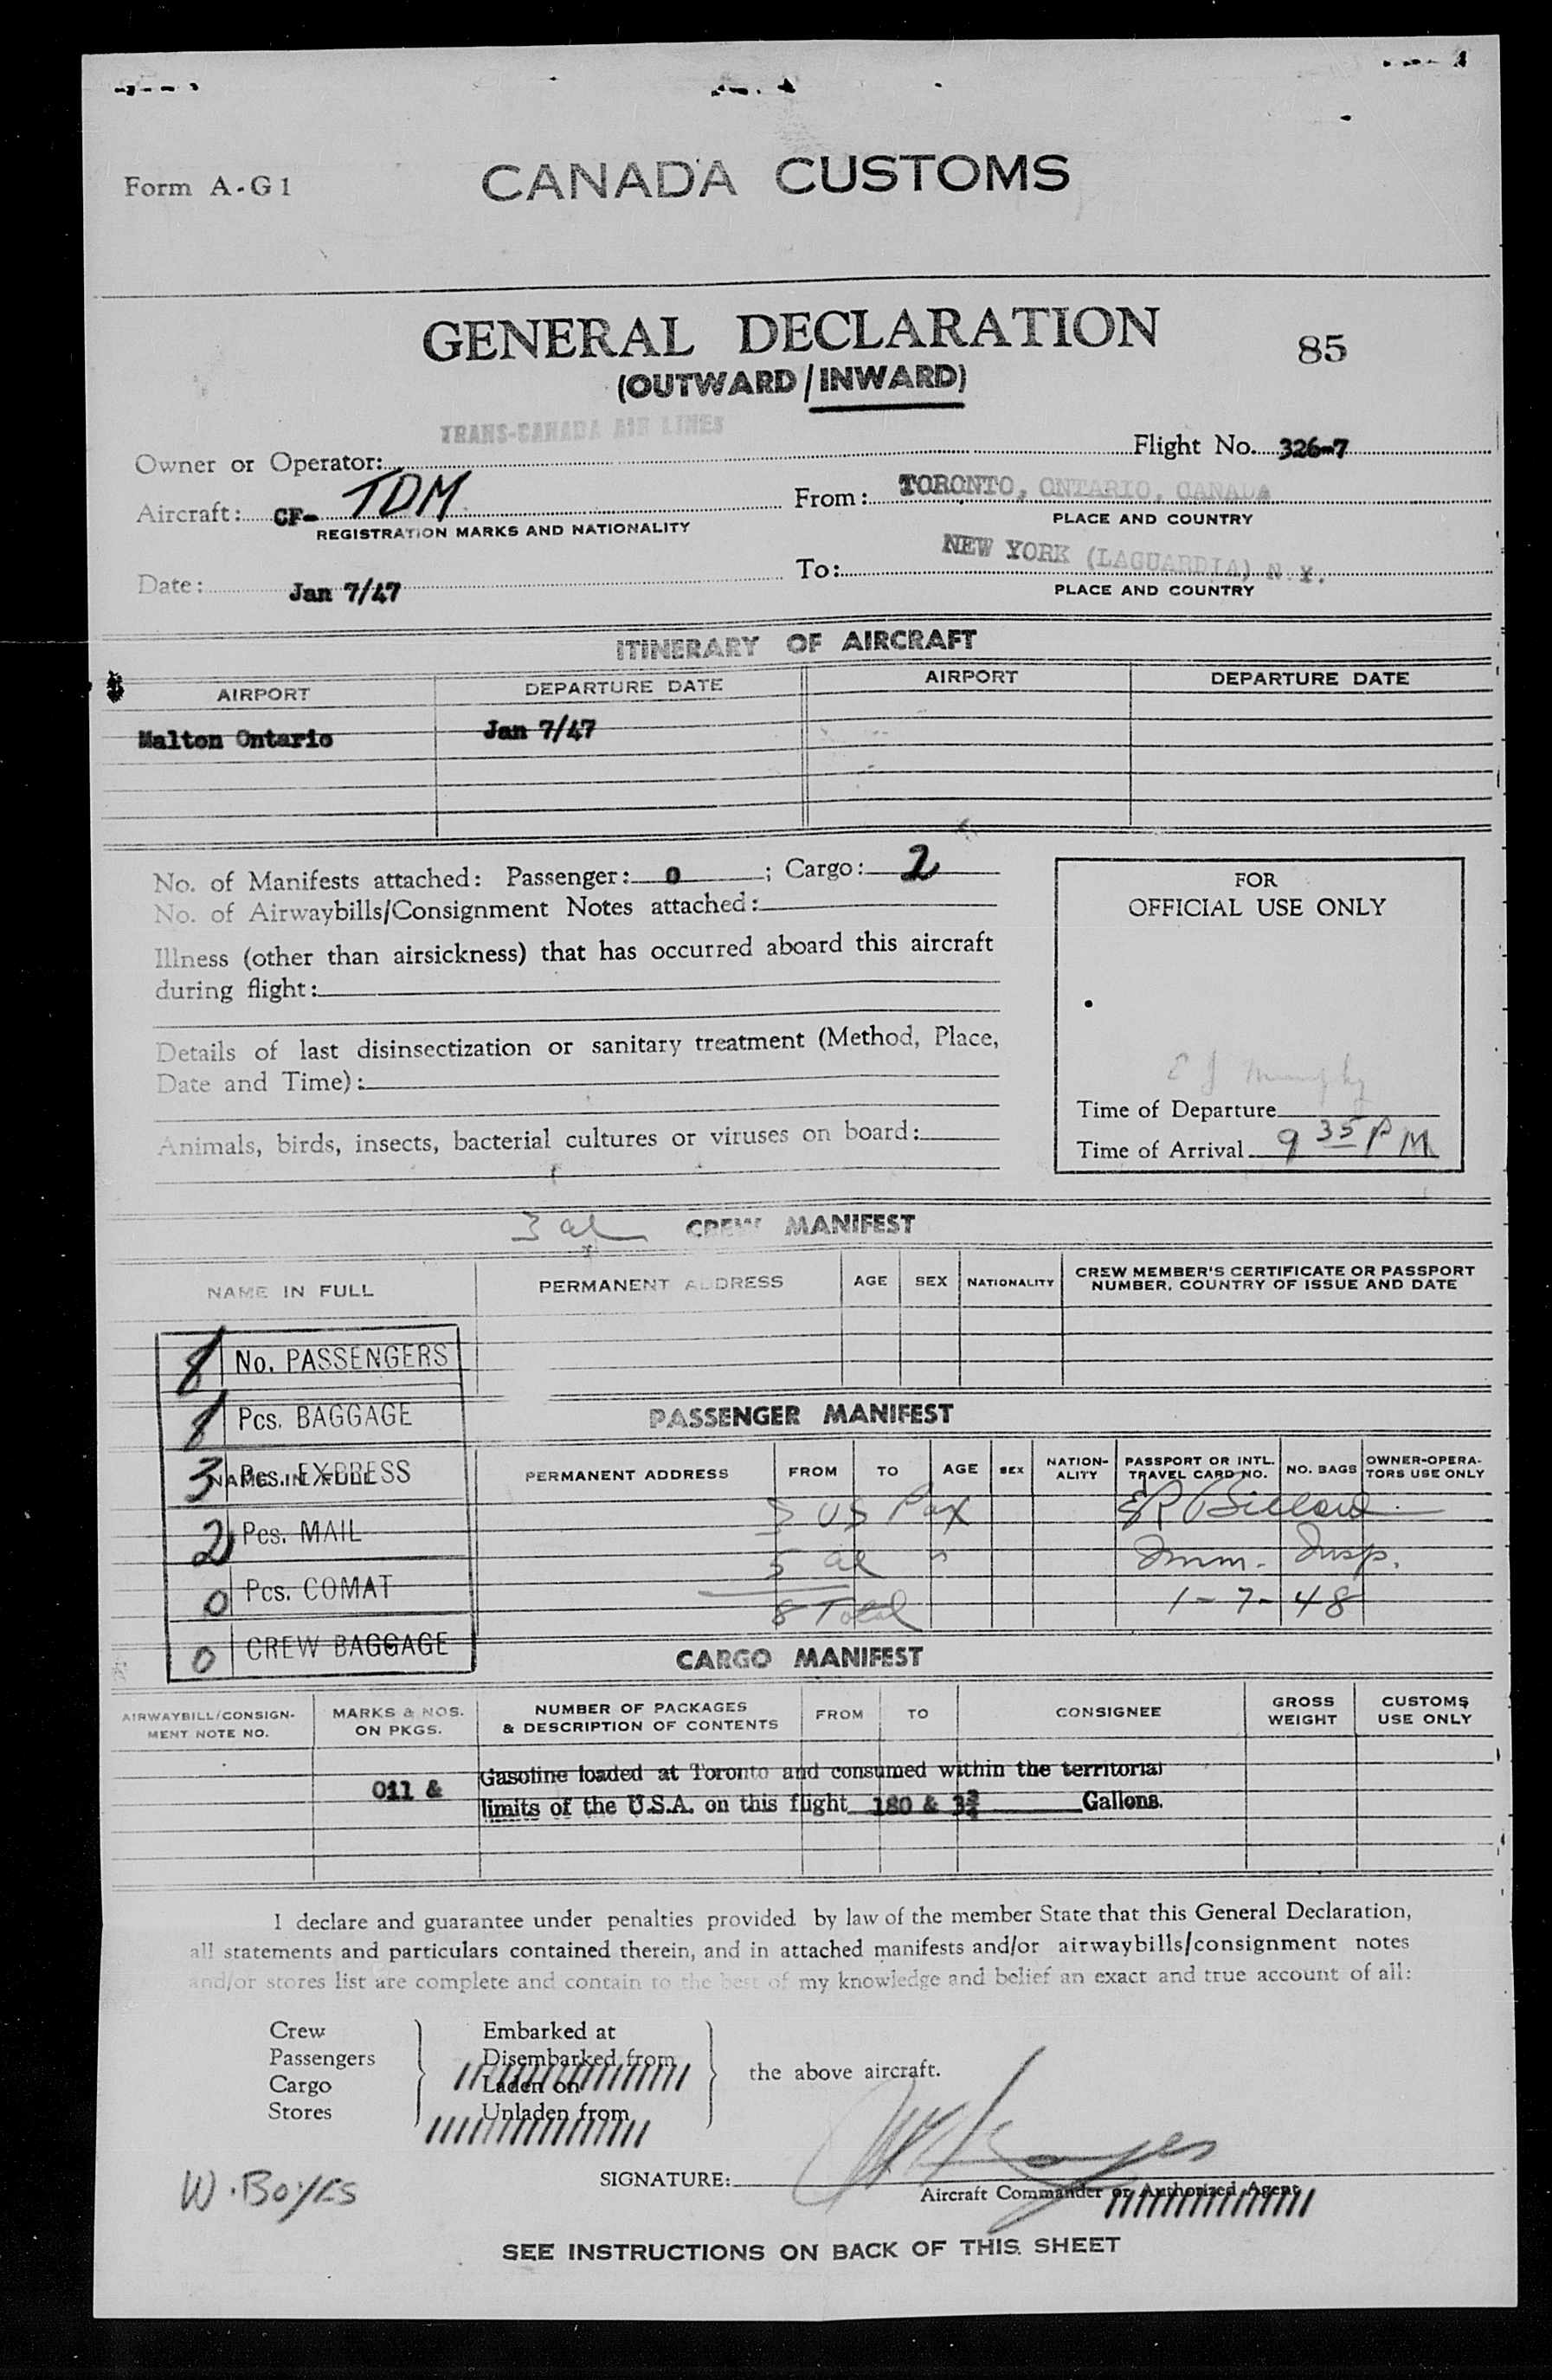 Form A-G1
CANADA CUSTOMS
GENERAL DECLARATION 85
(OUTWARD/INWARD)
TRANS-CANADA AIR LINES
Owner or Operator: Flight No. 326-7
Aircraft: CF- TDM From: TORONTO, ONTARIO, CANADA
REGISTRATION MARKS AND NATIONALITY PLACE AND COUNTRY
Date: Jan 7/47 To: NEW YORK (LAGUARDIA) N.Y.
PLACE AND COUNTRY
ITINERARY OF AIRCRAFT
AIRPORT DEPARTURE DATE AIRPORT DEPARTURE DATE
Malton Ontario Jan 7/47
No. of Manifests attached: Passenger: 0 ; Cargo: 2
No. of Airwaybills/Consignment Notes attached:
Illness (other than airsickness) that has occurred aboard this aircraft
during flight:
Details of last disinsectization or sanitary treatment (Method, Place,
Date and Time):
Animals, birds, insects, bacterial cultures or viruses on board:
FOR
OFFICIAL USE ONLY
E J Murphy
Time of Departure
Time of Arrival 9 35 PM
3 al CREW MANIFEST
NAME IN FULL PERMANENT ADDRESS AGE SEX NATIONALITY CREW MEMBER'S CERTIFICATE OR PASSPORT NUMBER, COUNTRY OF ISSUE AND DATE
8 No. PASSENGERS
8 Pcs. BAGGAGE
3 Pcs. EXPRESS
2 Pcs. MAIL
0 Pcs. COMAT
0 CREW BAGGAGE
PASSENGER MANIFEST
NAME IN FULL PERMANENT ADDRESS FROM TO AGE SEX NATION-ALITY PASSPORT OR INTL. TRAVEL CARD NO. NO. BAGS OWNER-OPERA-TORS USE ONLY
3 US Pax
5 al "
8 Total
Imm. Insp.
1-7-48
CARGO MANIFEST
AIRWAYBILL/CONSIGN-MENT NOTE NO. MARKS & NOS. ON PKGS. NUMBER OF PACKAGES & DESCRIPTION OF CONTENTS FROM TO CONSIGNEE GROSS WEIGHT CUSTOMS USE ONLY
Oil & Gasoline loaded at Toronto and consumed within the territorial
limits of the U.S.A. on this flight 180 & 3¾ Gallons.
I declare and guarantee under penalties provided by law of the member State that this General Declaration,
all statements and particulars contained therein, and in attached manifests and/or airwaybills/consignment notes
and/or stores list are complete and contain to the best of my knowledge and belief an exact and true account of all:
Crew Embarked at
Passengers Disembarked from
Cargo Laden on
Stores Unladen from
the above aircraft.
W. Boyes
SIGNATURE:
Aircraft Commander or Authorized Agent
SEE INSTRUCTIONS ON BACK OF THIS SHEET